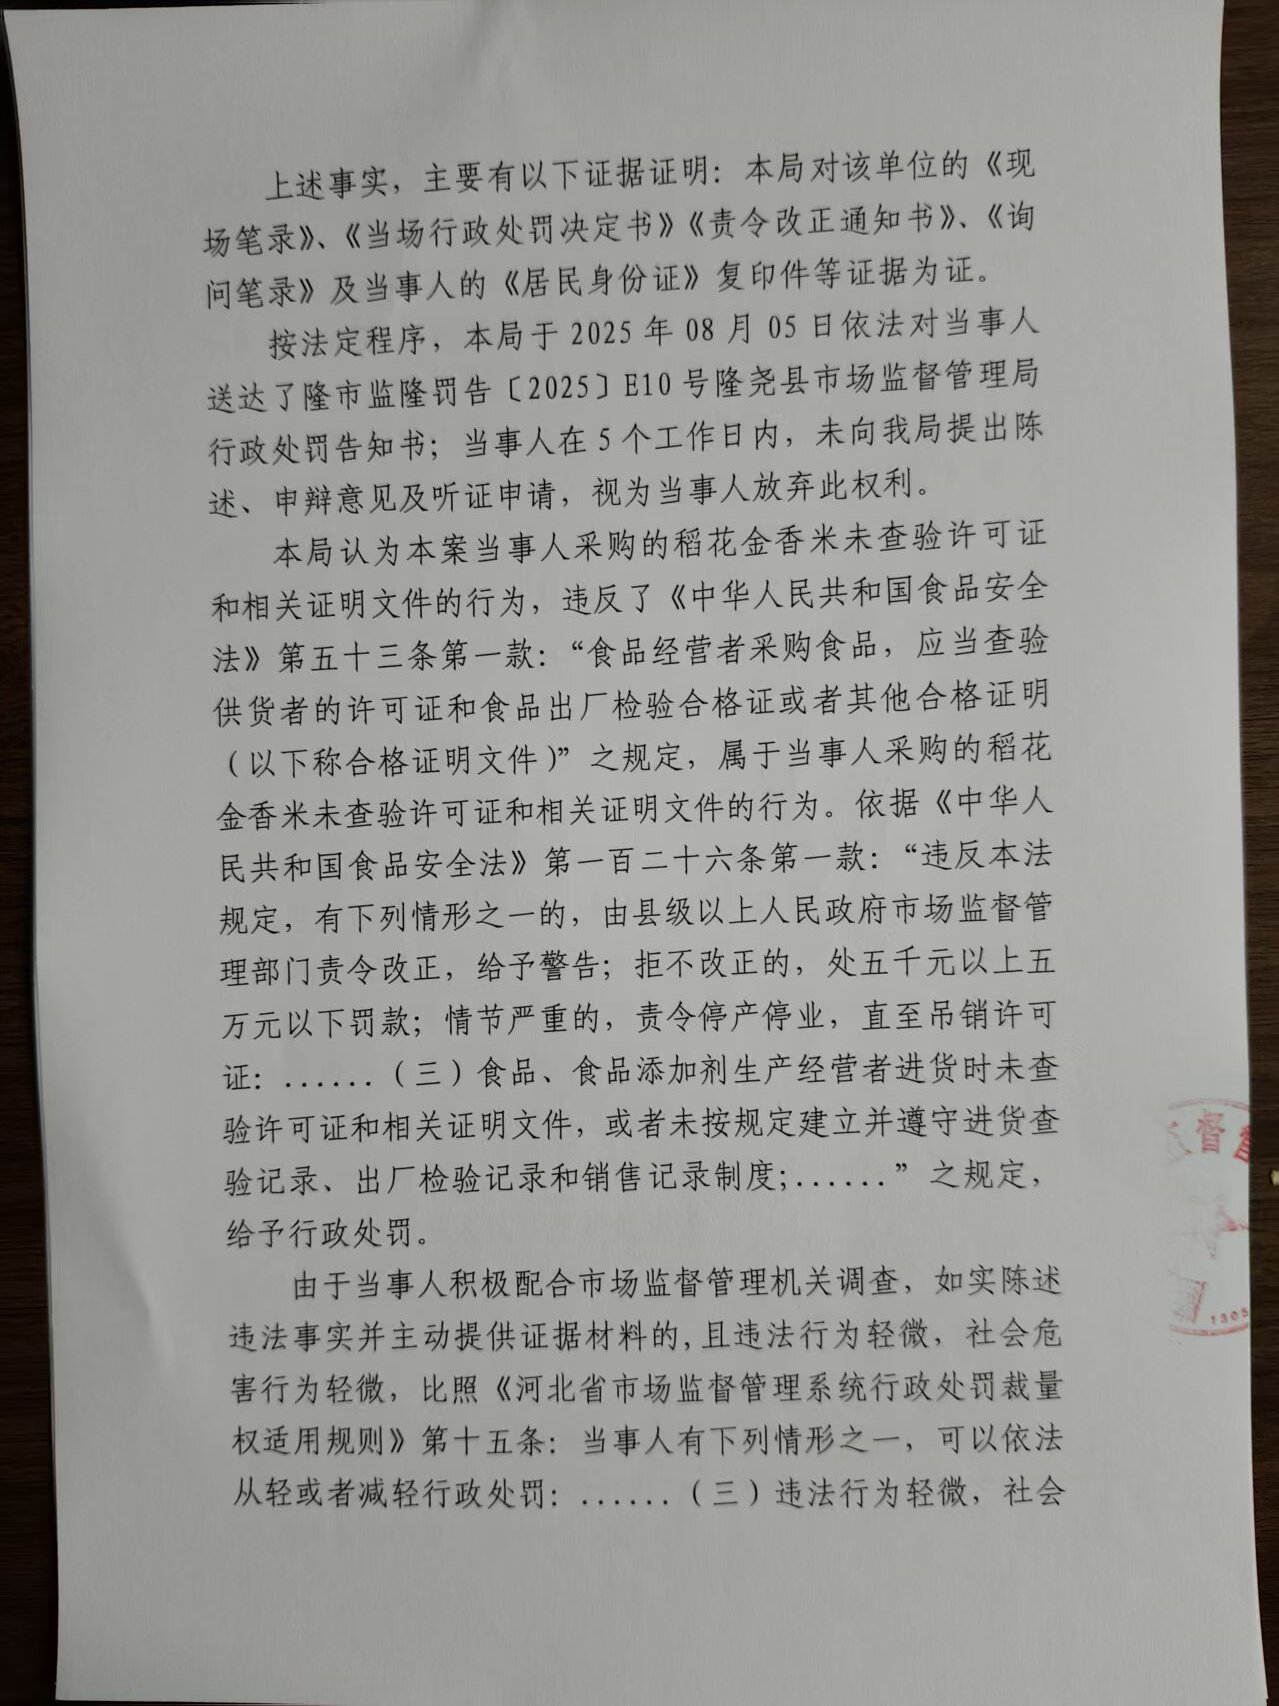 上述事实，主要有以下证据证明：本局对该单位的《现
场笔录》、《当场行政处罚决定书》《责令改正通知书》、《询
问笔录》及当事人的《居民身份证》复印件等证据为证。
按法定程序，本局于 2025 年 08 月 05 日依法对当事人
送达了隆市监隆罚告〔2025〕E10 号隆尧县市场监督管理局
行政处罚告知书；当事人在 5 个工作日内，未向我局提出陈
述、申辩意见及听证申请，视为当事人放弃此权利。
本局认为本案当事人采购的稻花金香米未查验许可证
和相关证明文件的行为，违反了《中华人民共和国食品安全
法》第五十三条第一款：“食品经营者采购食品，应当查验
供货者的许可证和食品出厂检验合格证或者其他合格证明
（以下称合格证明文件）”之规定，属于当事人采购的稻花
金香米未查验许可证和相关证明文件的行为。依据《中华人
民共和国食品安全法》第一百二十六条第一款：“违反本法
规定，有下列情形之一的，由县级以上人民政府市场监督管
理部门责令改正，给予警告；拒不改正的，处五千元以上五
万元以下罚款；情节严重的，责令停产停业，直至吊销许可
证：......（三）食品、食品添加剂生产经营者进货时未查
验许可证和相关证明文件，或者未按规定建立并遵守进货查
验记录、出厂检验记录和销售记录制度;......”之规定，
给予行政处罚。
由于当事人积极配合市场监督管理机关调查，如实陈述
违法事实并主动提供证据材料的,且违法行为轻微，社会危
害行为轻微，比照《河北省市场监督管理系统行政处罚裁量
权适用规则》第十五条：当事人有下列情形之一，可以依法
从轻或者减轻行政处罚：......（三）违法行为轻微，社会
督
1305